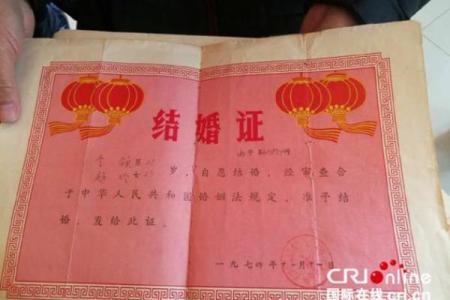 结婚证
岁，自愿结婚，经审查合
于中华人民共和国婚姻法规定，准予结
婚，发给此证。
一九七四年十一月十一日
CRIonline
国际在线 cri.cn